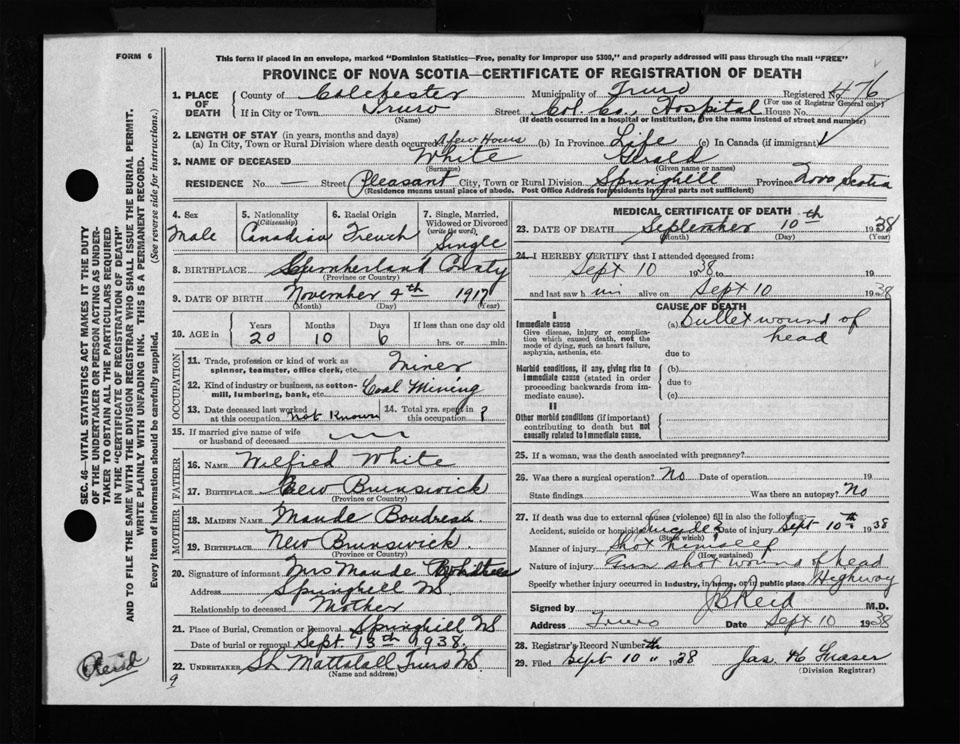 FORM 6
This form if placed in an envelope, marked "Dominion Statistics—Free, penalty for improper use $300," and properly addressed will pass through the mail "FREE"
PROVINCE OF NOVA SCOTIA—CERTIFICATE OF REGISTRATION OF DEATH
1. PLACE OF DEATH
County of Colchester Municipality of Truro Registered No. 476
(For use of Registrar General only)
If in City or Town Truro Street Col. Co. Hospital House No.
(Name) (If death occurred in a hospital or institution, give the name instead of street and number)
2. LENGTH OF STAY (in years, months and days)
(a) In City, Town or Rural Division where death occurred A few Hours (b) In Province Life (c) In Canada (if immigrant)
3. NAME OF DECEASED White Gerald
(Surname) (Given name or names)
RESIDENCE No. — Street Pleasant City, Town or Rural Division Springhill Province Nova Scotia
(Residence means usual place of abode. Post Office Address for residents in rural parts not sufficient)
4. Sex
Male
5. Nationality
(Citizenship)
Canadian
6. Racial Origin
French
7. Single, Married, Widowed or Divorced
(write the word)
Single
8. BIRTHPLACE Cumberland County
(Province or Country)
9. DATE OF BIRTH November 4th 1917
(Month) (Day) (Year)
10. AGE in
Years Months Days If less than one day old
20 10 6 hrs. or min.
OCCUPATION
11. Trade, profession or kind of work as spinner, teamster, office clerk, etc. Miner
12. Kind of industry or business, as cotton-mill, lumbering, bank, etc. Coal Mining
13. Date deceased last worked at this occupation Not Known
14. Total yrs. spent in this occupation ?
15. If married give name of wife or husband of deceased
FATHER
16. NAME Wilfred White
17. BIRTHPLACE New Brunswick
(Province or Country)
MOTHER
18. MAIDEN NAME Maude Boudreau.
19. BIRTHPLACE New Brunswick.
(Province or Country)
20. Signature of informant Mrs Maude
Address Springhill NS
Relationship to deceased Mother
21. Place of Burial, Cremation or Removal Springhill NS
Date of burial or removal Sept. 13th 1938.
22. UNDERTAKER Mattatall Truro NS.
(Name and address)
MEDICAL CERTIFICATE OF DEATH
23. DATE OF DEATH September 10th 1938
(Month) (Day) (Year)
24. I HEREBY CERTIFY that I attended deceased from:
Sept 10 1938 to 19
and last saw him alive on Sept 10 1938
CAUSE OF DEATH
I
Immediate cause
Give disease, injury or complication which caused death, not the mode of dying, such as heart failure, asphyxia, asthenia, etc.
(a) Bullet wound of head
due to
Morbid conditions, if any, giving rise to immediate cause (stated in order proceeding backwards from immediate cause).
(b)
due to
(c)
II
Other morbid conditions (if important) contributing to death but not causally related to immediate cause.
25. If a woman, was the death associated with pregnancy?
26. Was there a surgical operation? No Date of operation 19
State findings Was there an autopsy? No
27. If death was due to external causes (violence) fill in also the following:
Accident, suicide or homicide? Suicide Date of injury Sept 10th 1938
(State which)
Manner of injury Shot himself
(How sustained)
Nature of injury Gun shot wound of head
Specify whether injury occurred in industry, in home, or in public place Highway
Signed by J B Reid M.D.
Address Truro Date Sept 10 1938
28. Registrar's Record Number
29. Filed Sept 10th 1938 Jas. H Fraser
(Division Registrar)
SEC. 46—VITAL STATISTICS ACT MAKES IT THE DUTY
OF THE UNDERTAKER OR PERSON ACTING AS UNDER-
TAKER TO OBTAIN ALL THE PARTICULARS REQUIRED
IN THE "CERTIFICATE OF REGISTRATION OF DEATH"
AND TO FILE THE SAME WITH THE DIVISION REGISTRAR WHO SHALL ISSUE THE BURIAL PERMIT.
WRITE PLAINLY WITH UNFADING INK. THIS IS A PERMANENT RECORD.
Every item of information should be carefully supplied. (See reverse side for instructions.)
Reid
9